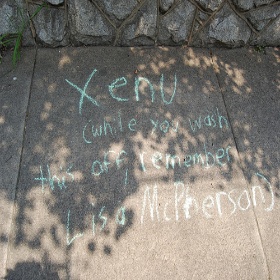 Xenu
(while you wash
this off, remember
Lisa McPherson)